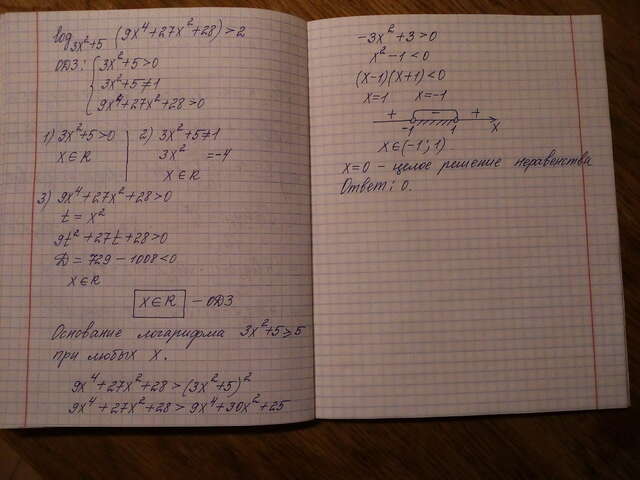 log₃ₓ²₊₅ (9x⁴+27x²+28) > 2
ОДЗ: { 3x²+5>0
3x²+5≠1
9x⁴+27x²+28>0
1) 3x²+5>0 | 2) 3x²+5≠1
x∈R | 3x² =-4
x∈R
3) 9x⁴+27x²+28>0
t = x²
9t²+27t+28>0
D = 729 - 1008<0
x∈R
x∈R - ОДЗ
Основание логарифма 3x²+5≥5
при любых x.
9x⁴+27x²+28 > (3x²+5)²
9x⁴+27x²+28 > 9x⁴+30x²+25
-3x²+3>0
x²-1<0
(x-1)(x+1)<0
x=1 x=-1
+ - +
-1 1 x
x∈(-1; 1)
x=0 - целое решение неравенства
Ответ: 0.